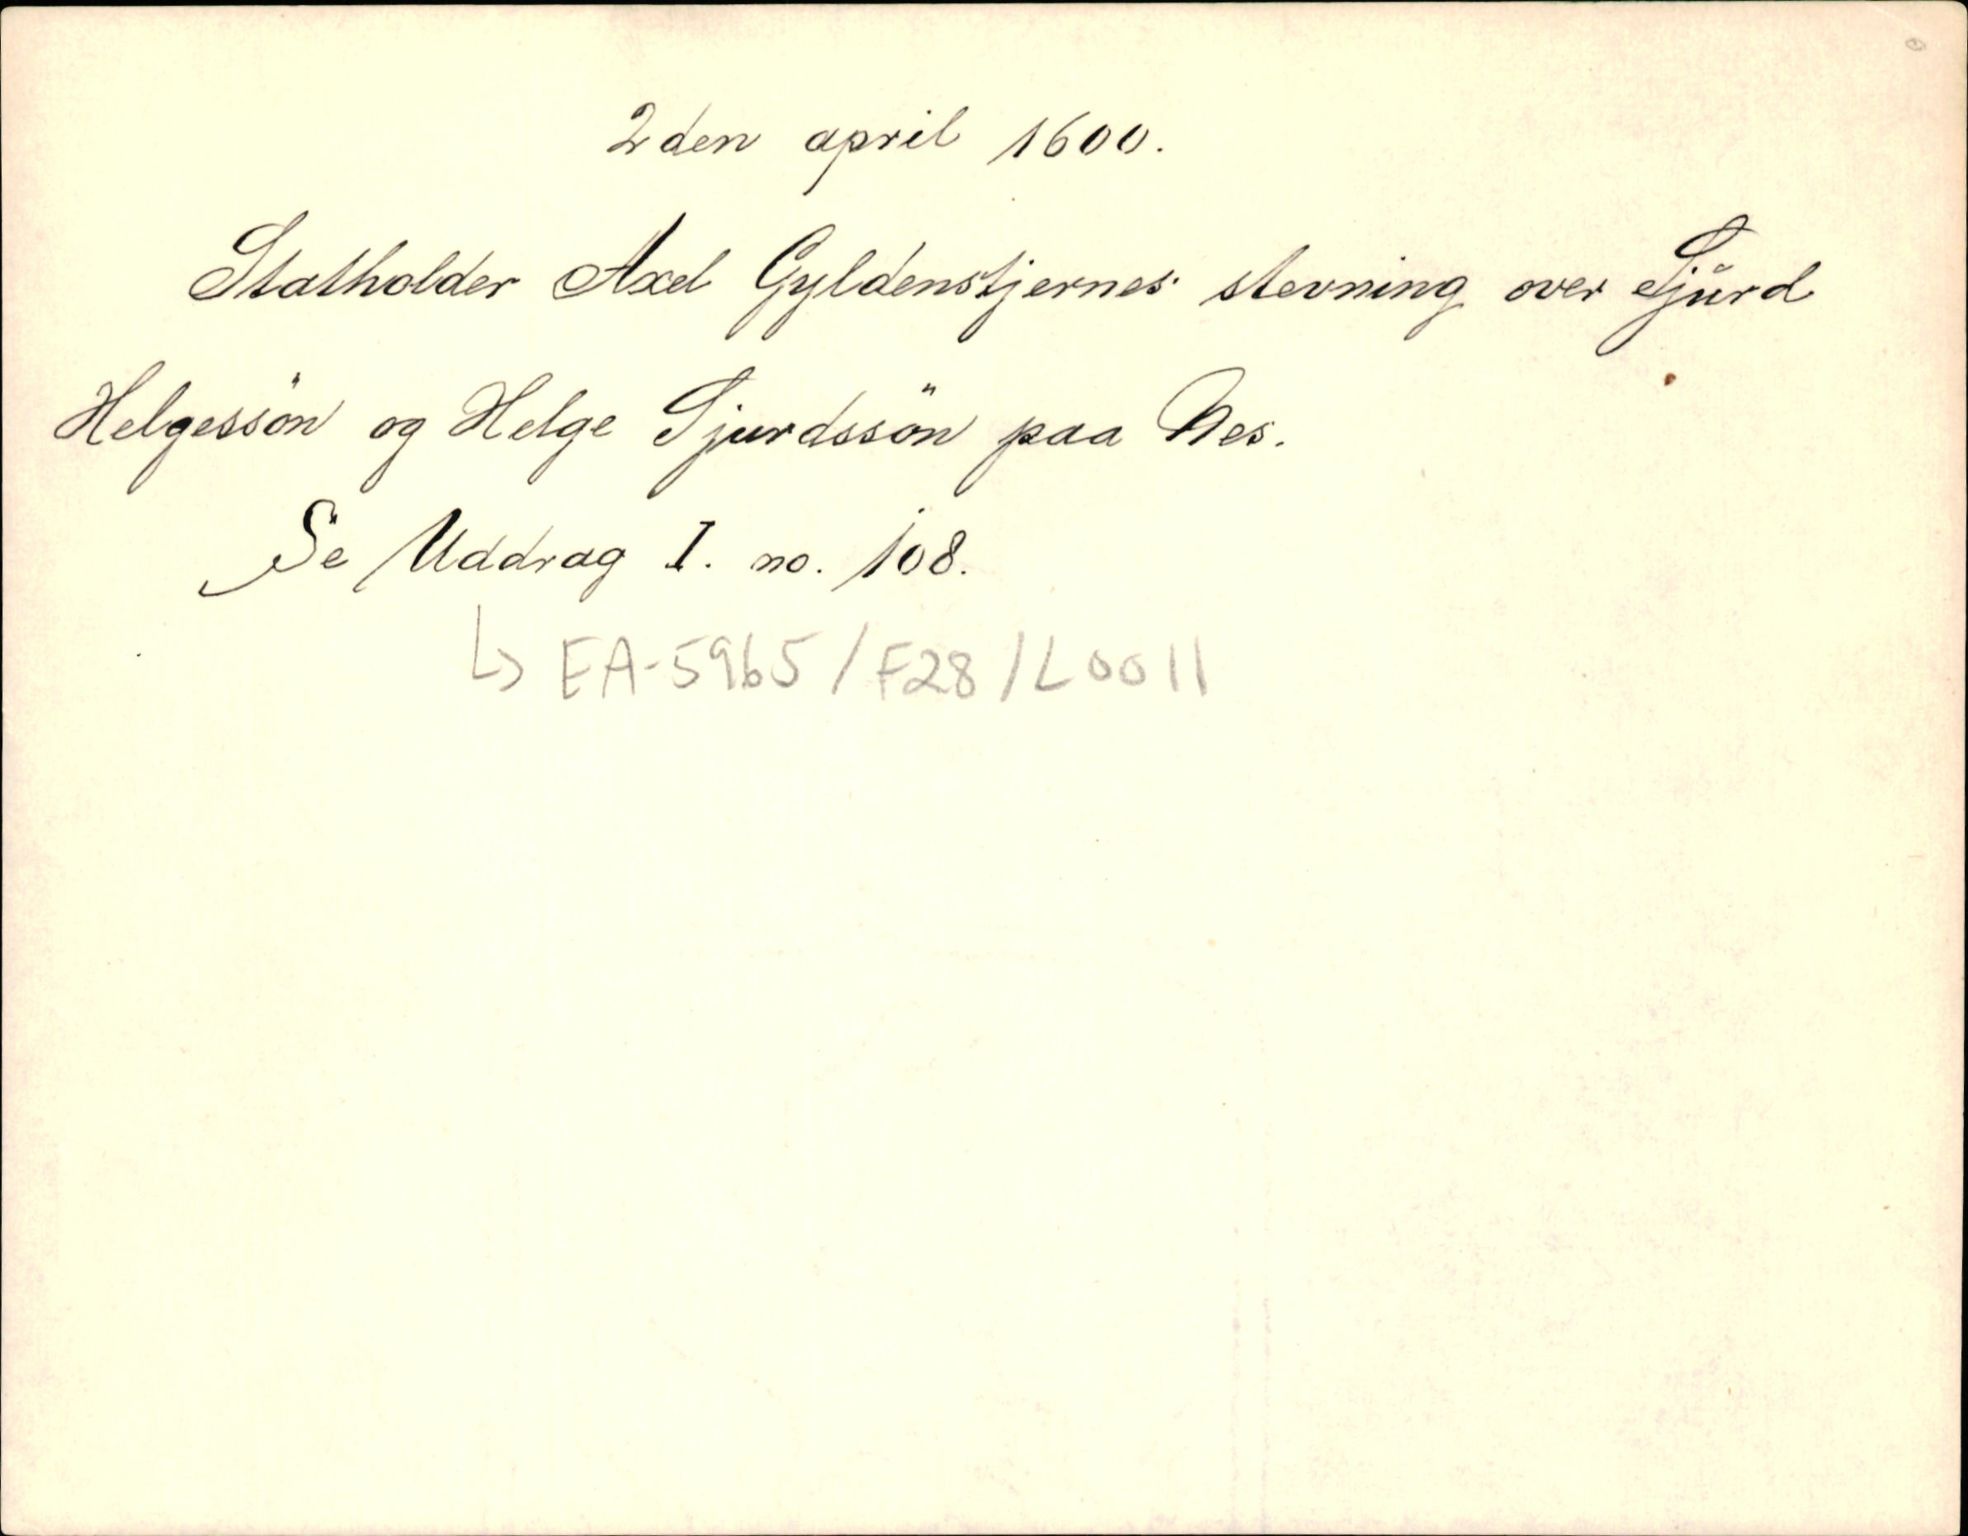 2den april 1600.
Statholder Axel Gyldenstjernes stevning over Sjŭrd
Helgessön og Helge Sjurdssön paa Nes.
Se Uddrag I. no. 108.
↳ EA-5965/F28/L0011